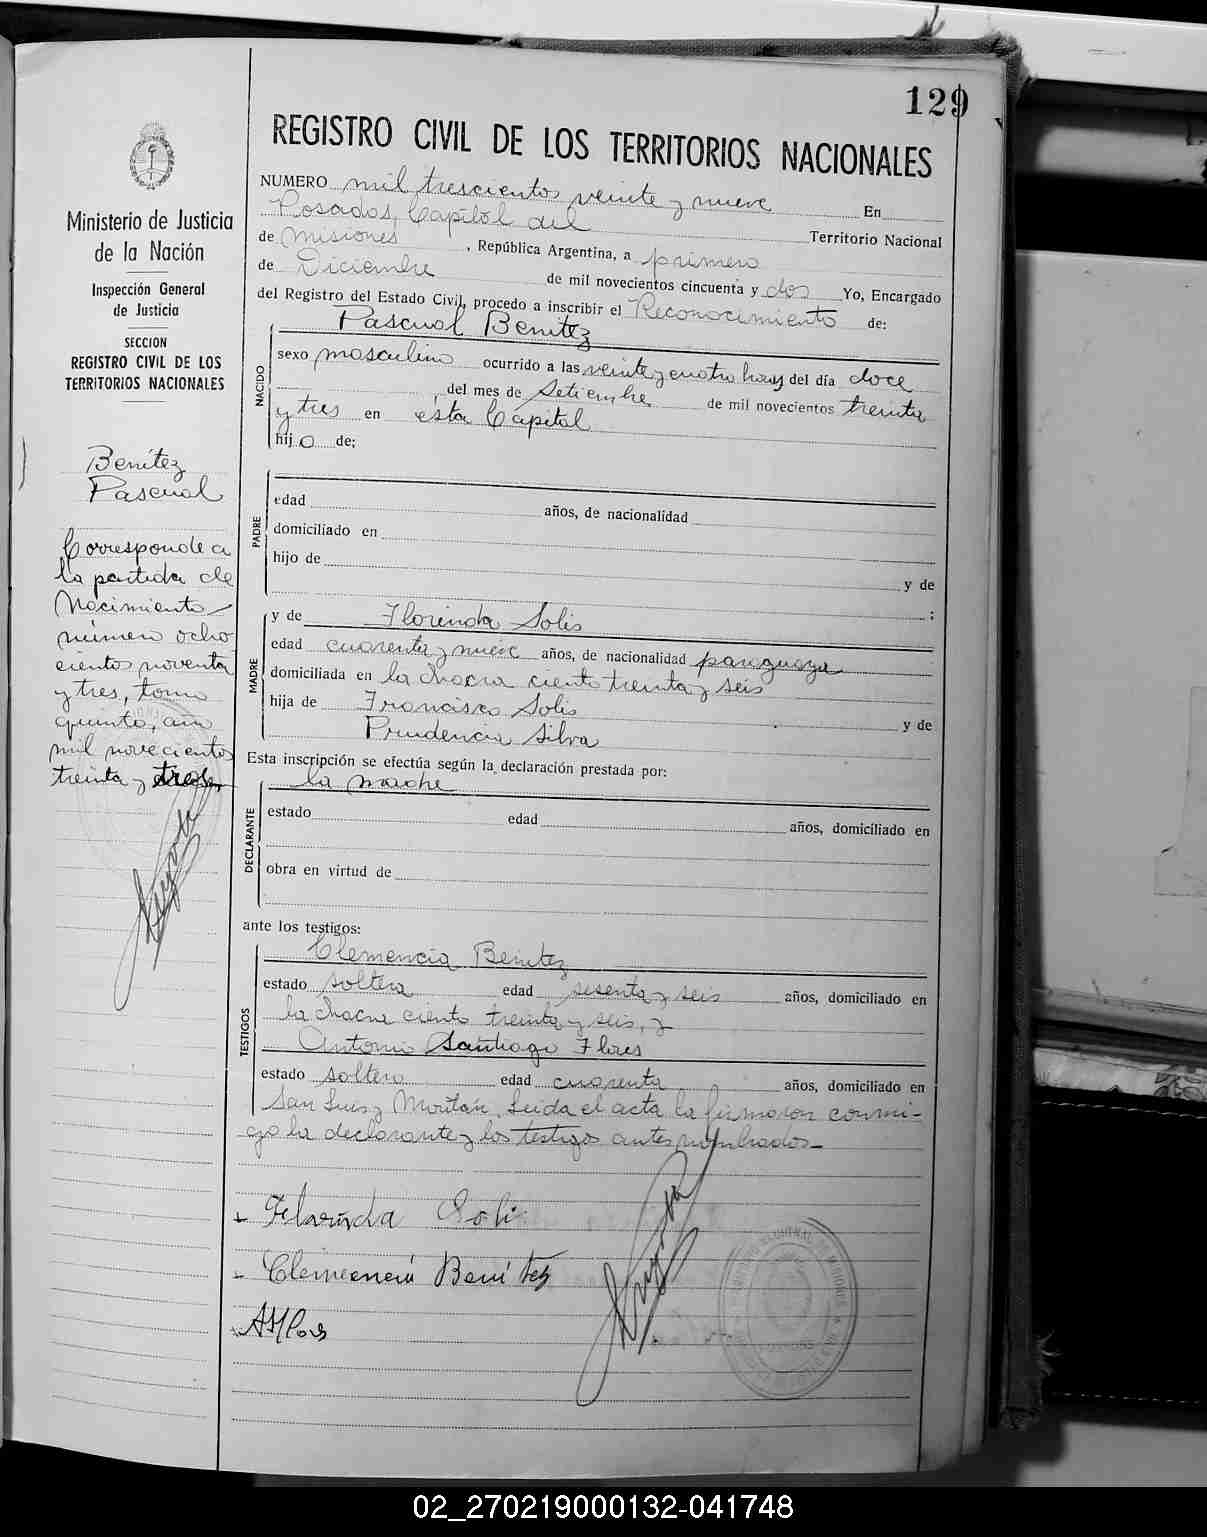 129
REGISTRO CIVIL DE LOS TERRITORIOS NACIONALES
NUMERO mil trescientos veinte y nueve En
Posadas, Capital del Territorio Nacional
de Misiones, República Argentina, a primero
de Diciembre de mil novecientos cincuenta y dos Yo, Encargado
del Registro del Estado Civil, procedo a inscribir el Reconocimiento de:
Pascual Benitez
NACIDO
sexo masculino ocurrido a las veinte y cuatro horas del día doce
del mes de Setiembre de mil novecientos treinta
y tres en esta Capital
hijo de:
PADRE
edad años, de nacionalidad
domiciliado en
hijo de
y de
;
MADRE
y de Florinda Solis
edad cuarenta y nueve años, de nacionalidad paraguaya
domiciliada en la chacra ciento treinta y seis
hija de Francisco Solis y de
Prudencia Silva
Esta inscripción se efectúa según la declaración prestada por:
la madre
DECLARANTE
estado edad años, domiciliado en
obra en virtud de
ante los testigos:
TESTIGOS
Clemencia Benitez
estado soltera edad sesenta y seis años, domiciliado en
la chacra ciento treinta y seis, y
Antonio Santiago Flores
estado soltero edad cuarenta años, domiciliado en
San Luis y Moritán. Leida el acta la firmaron conmi-
go la declarante y los testigos antes nombrados-
Florinda Solis
Clemencia Benitez
ASFlores
Ministerio de Justicia
de la Nación
Inspección General
de Justicia
SECCION
REGISTRO CIVIL DE LOS
TERRITORIOS NACIONALES
Benitez
Pascual
Corresponde a
la partida de
Nacimiento
número ocho
cientos noventa
y tres, tomo
quinto, año
mil novecientos
treinta y tres
02_270219000132-041748